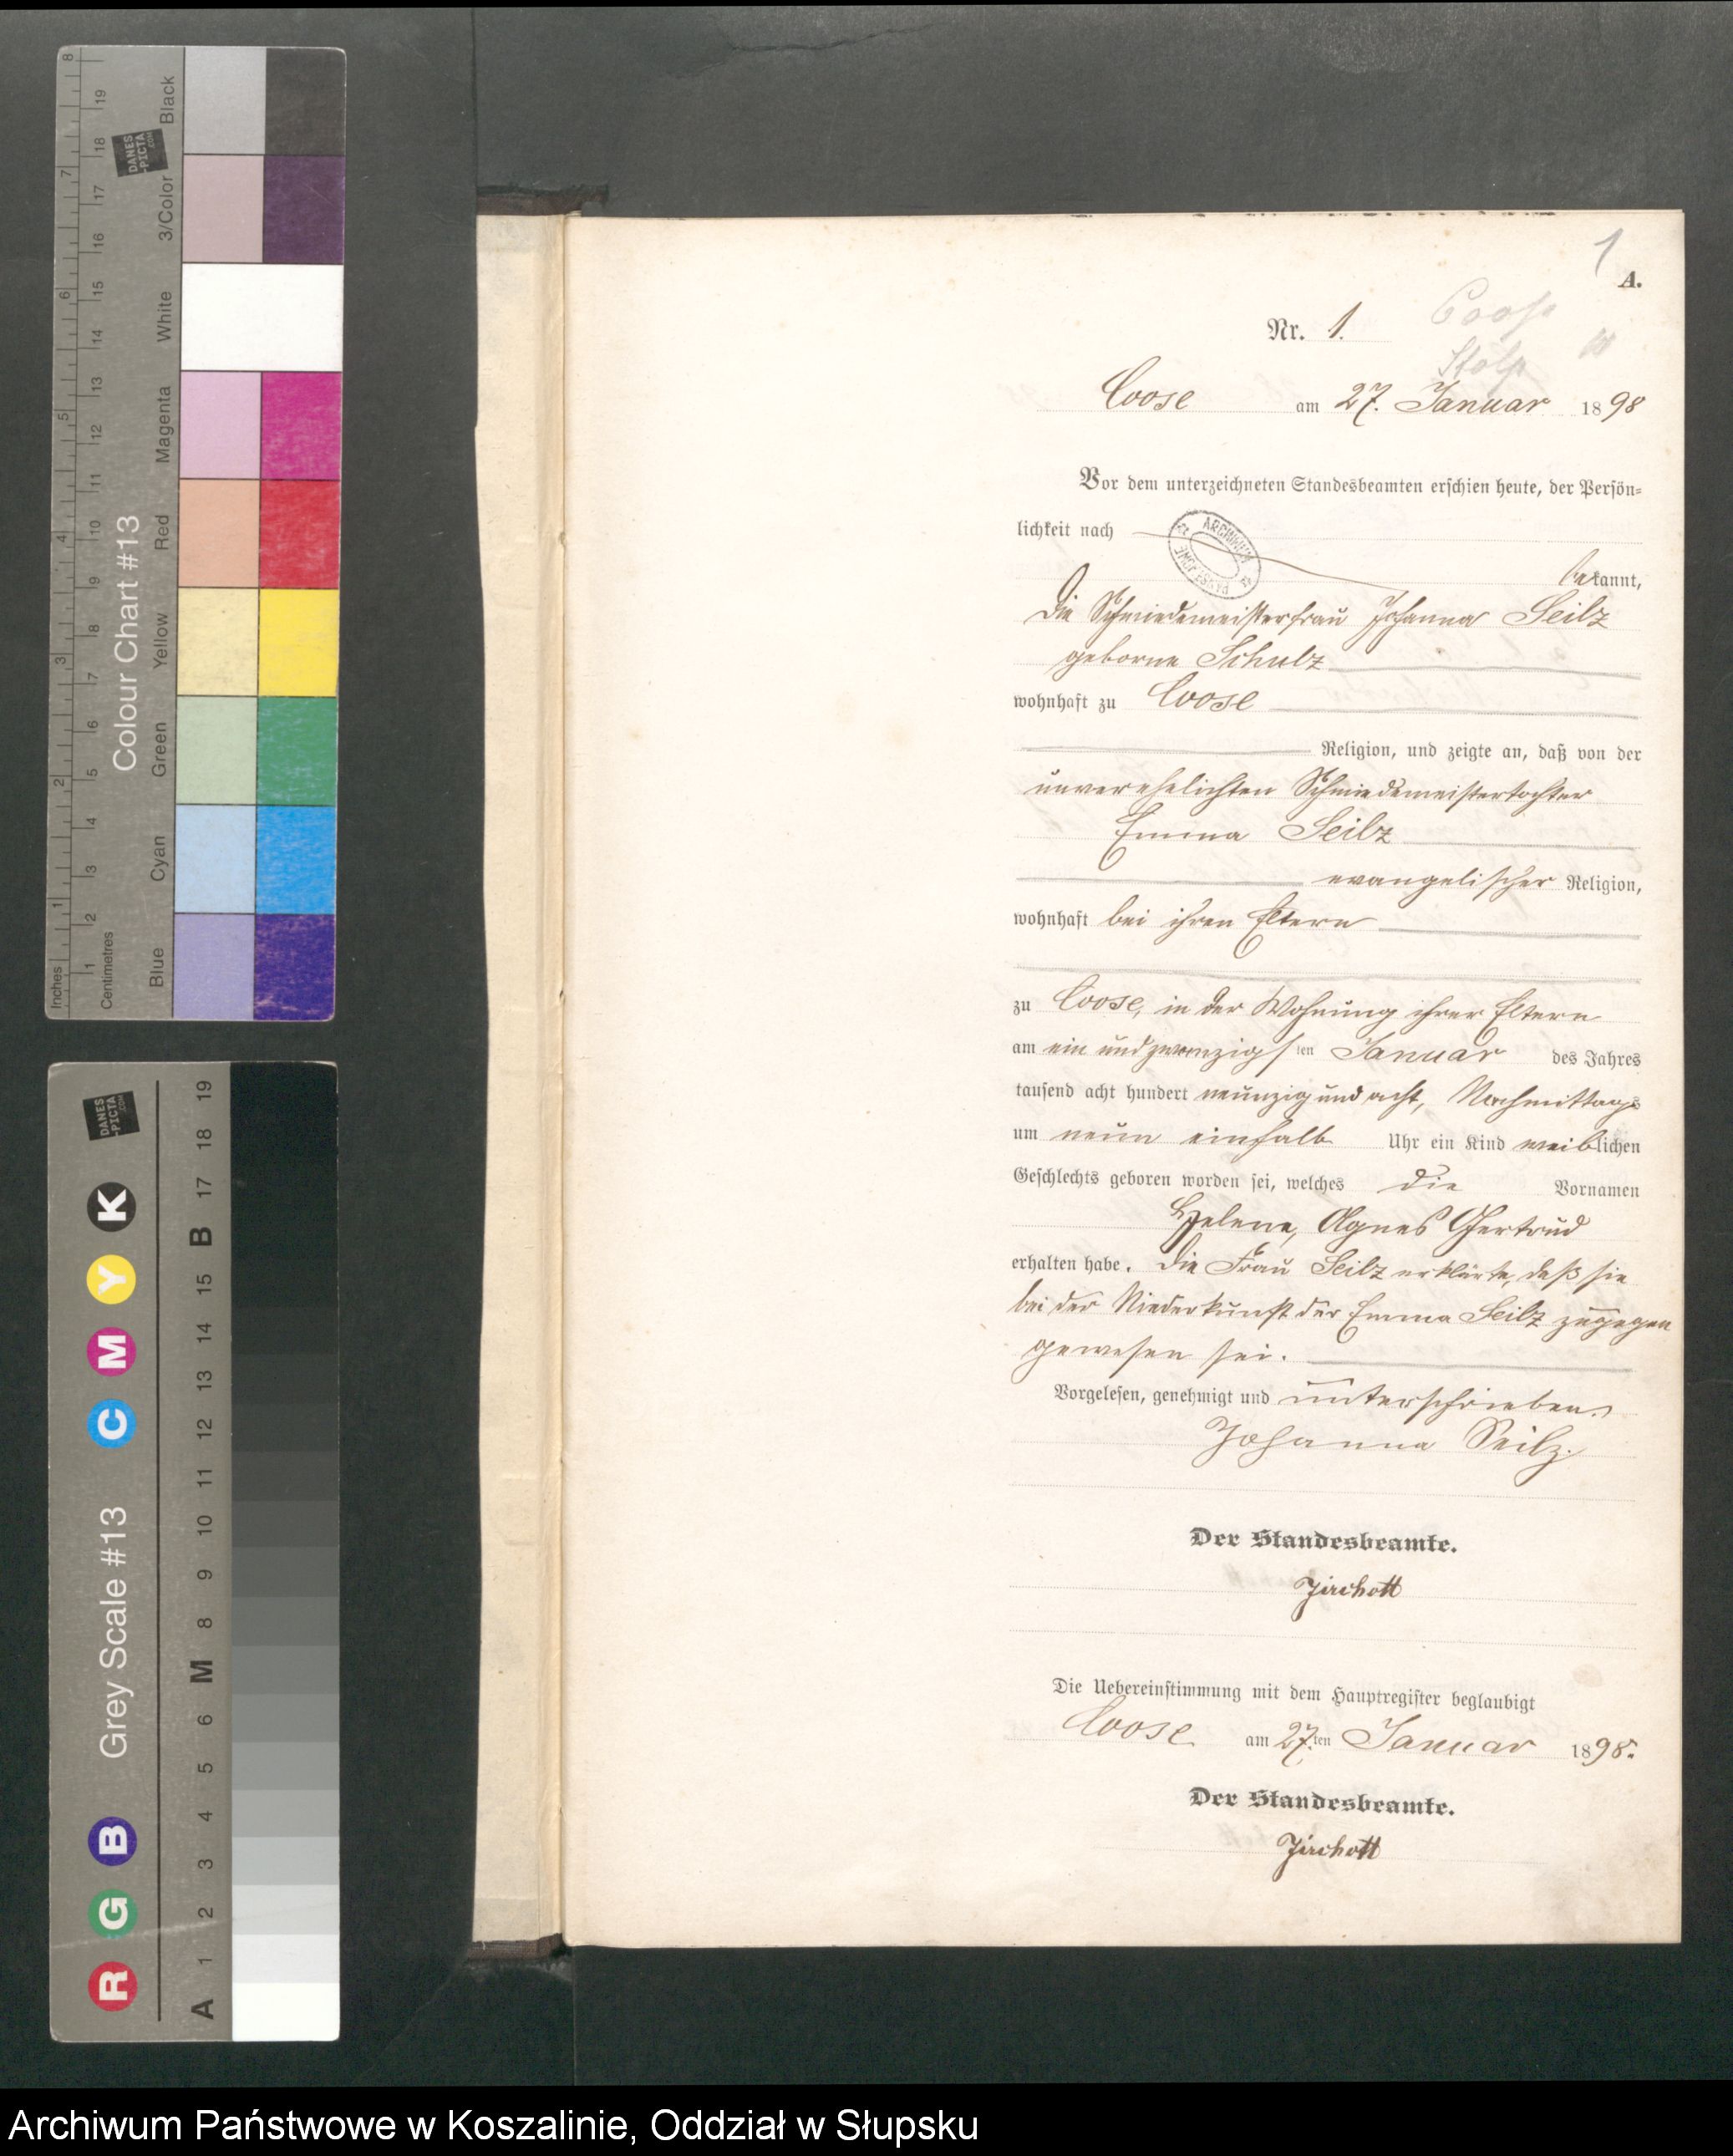 1
A.
Nr. 1.
Coose
Stolp
Coose am 27. Januar 1898
Vor dem unterzeichneten Standesbeamten erschien heute, der Persön=
lichkeit nach
bekannt,
die Schmiedemeisterfrau Johanna Seilz
geborne Schulz
wohnhaft zu Coose
Religion, und zeigte an, daß von der
unverehelichten Schmiedemeistertochter
Emma Seilz
evangelischer Religion,
wohnhaft bei ihren Eltern
zu Coose, in der Wohnung ihrer Eltern
am ein und zwanzigsten Januar des Jahres
tausend acht hundert neunzig und acht, Nachmittags
um neun einhalb Uhr ein Kind weiblichen
Geschlechts geboren worden sei, welches die Vornamen
Helene, Agnes Gertrud
erhalten habe. Die Frau Seilz erklärte, daß sie
bei der Niederkunft der Emma Seilz zugegen
gewesen sei.
Vorgelesen, genehmigt und unterschrieben.
Johanna Seilz.
Der Standesbeamte.
Zirchott
Die Uebereinstimmung mit dem Hauptregister beglaubigt
Coose am 27.ten Januar 1898.
Der Standesbeamte.
Zirchott
Colour Chart #13
Inches
Centimetres
Blue Cyan Green Yellow Red Magenta White 3/Color Black
1 2 3 4 5 6 7 8
1 2 3 4 5 6 7 8 9 10 11 12 13 14 15 16 17 18 19
DANES
-PICTA
.COM
Grey Scale #13
R G B C M Y K
A 1 2 3 4 5 6 M 8 9 10 11 12 13 14 15 B 17 18 19
DANES
-PICTA
.COM
Archiwum Państwowe w Koszalinie, Oddział w Słupsku